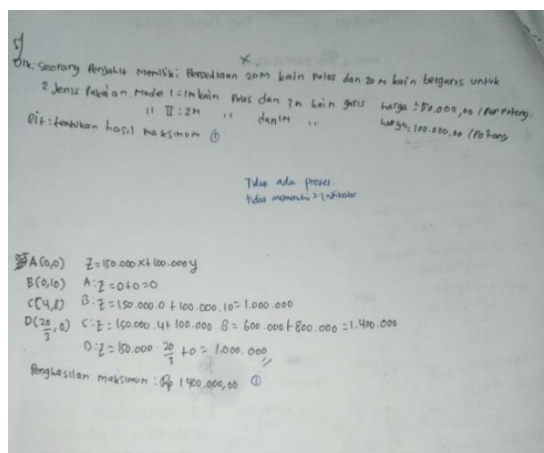 5)
Dik: Seorang Penjahit Memiliki Persediaan 20 M kain Polos dan 20 M kain bergaris untuk
2 Jenis Pakaian Model 1 = 1M kain Polos dan 3M kain garis harga = 150.000,00 / Per Potong
" II : 2M " dan 1M " harga = 100.000,00 / Potong
Dit : tentukan hasil maksimum ①
Tidak ada proses.
tidak memenuhi 2 Indikator
A (0,0) Z = 150.000 X + 100.000 y
B (0,10) A : Z = 0 + 0 = 0
C (4,8) B : Z = 150.000.0 + 100.000.10 = 1.000.000
D (20/3, 0) C : Z = 150.000.4 + 100.000 8 = 600.000 + 800.000 = 1.400.000
D : Z = 150.000 20/3 + 0 = 1.000.000 //
Penghasilan maksimum : Rp 1.400.000,00 ①